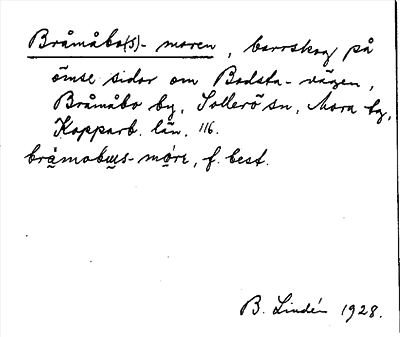 Bråmåbo(s)- moren, barrskog på
ömse sidor om Bodsta-vägen,
Bråmåbo by, Sollerö sn, Mora tg,
Kopparb. län. 116.
f. best.
B. Lindén 1928.